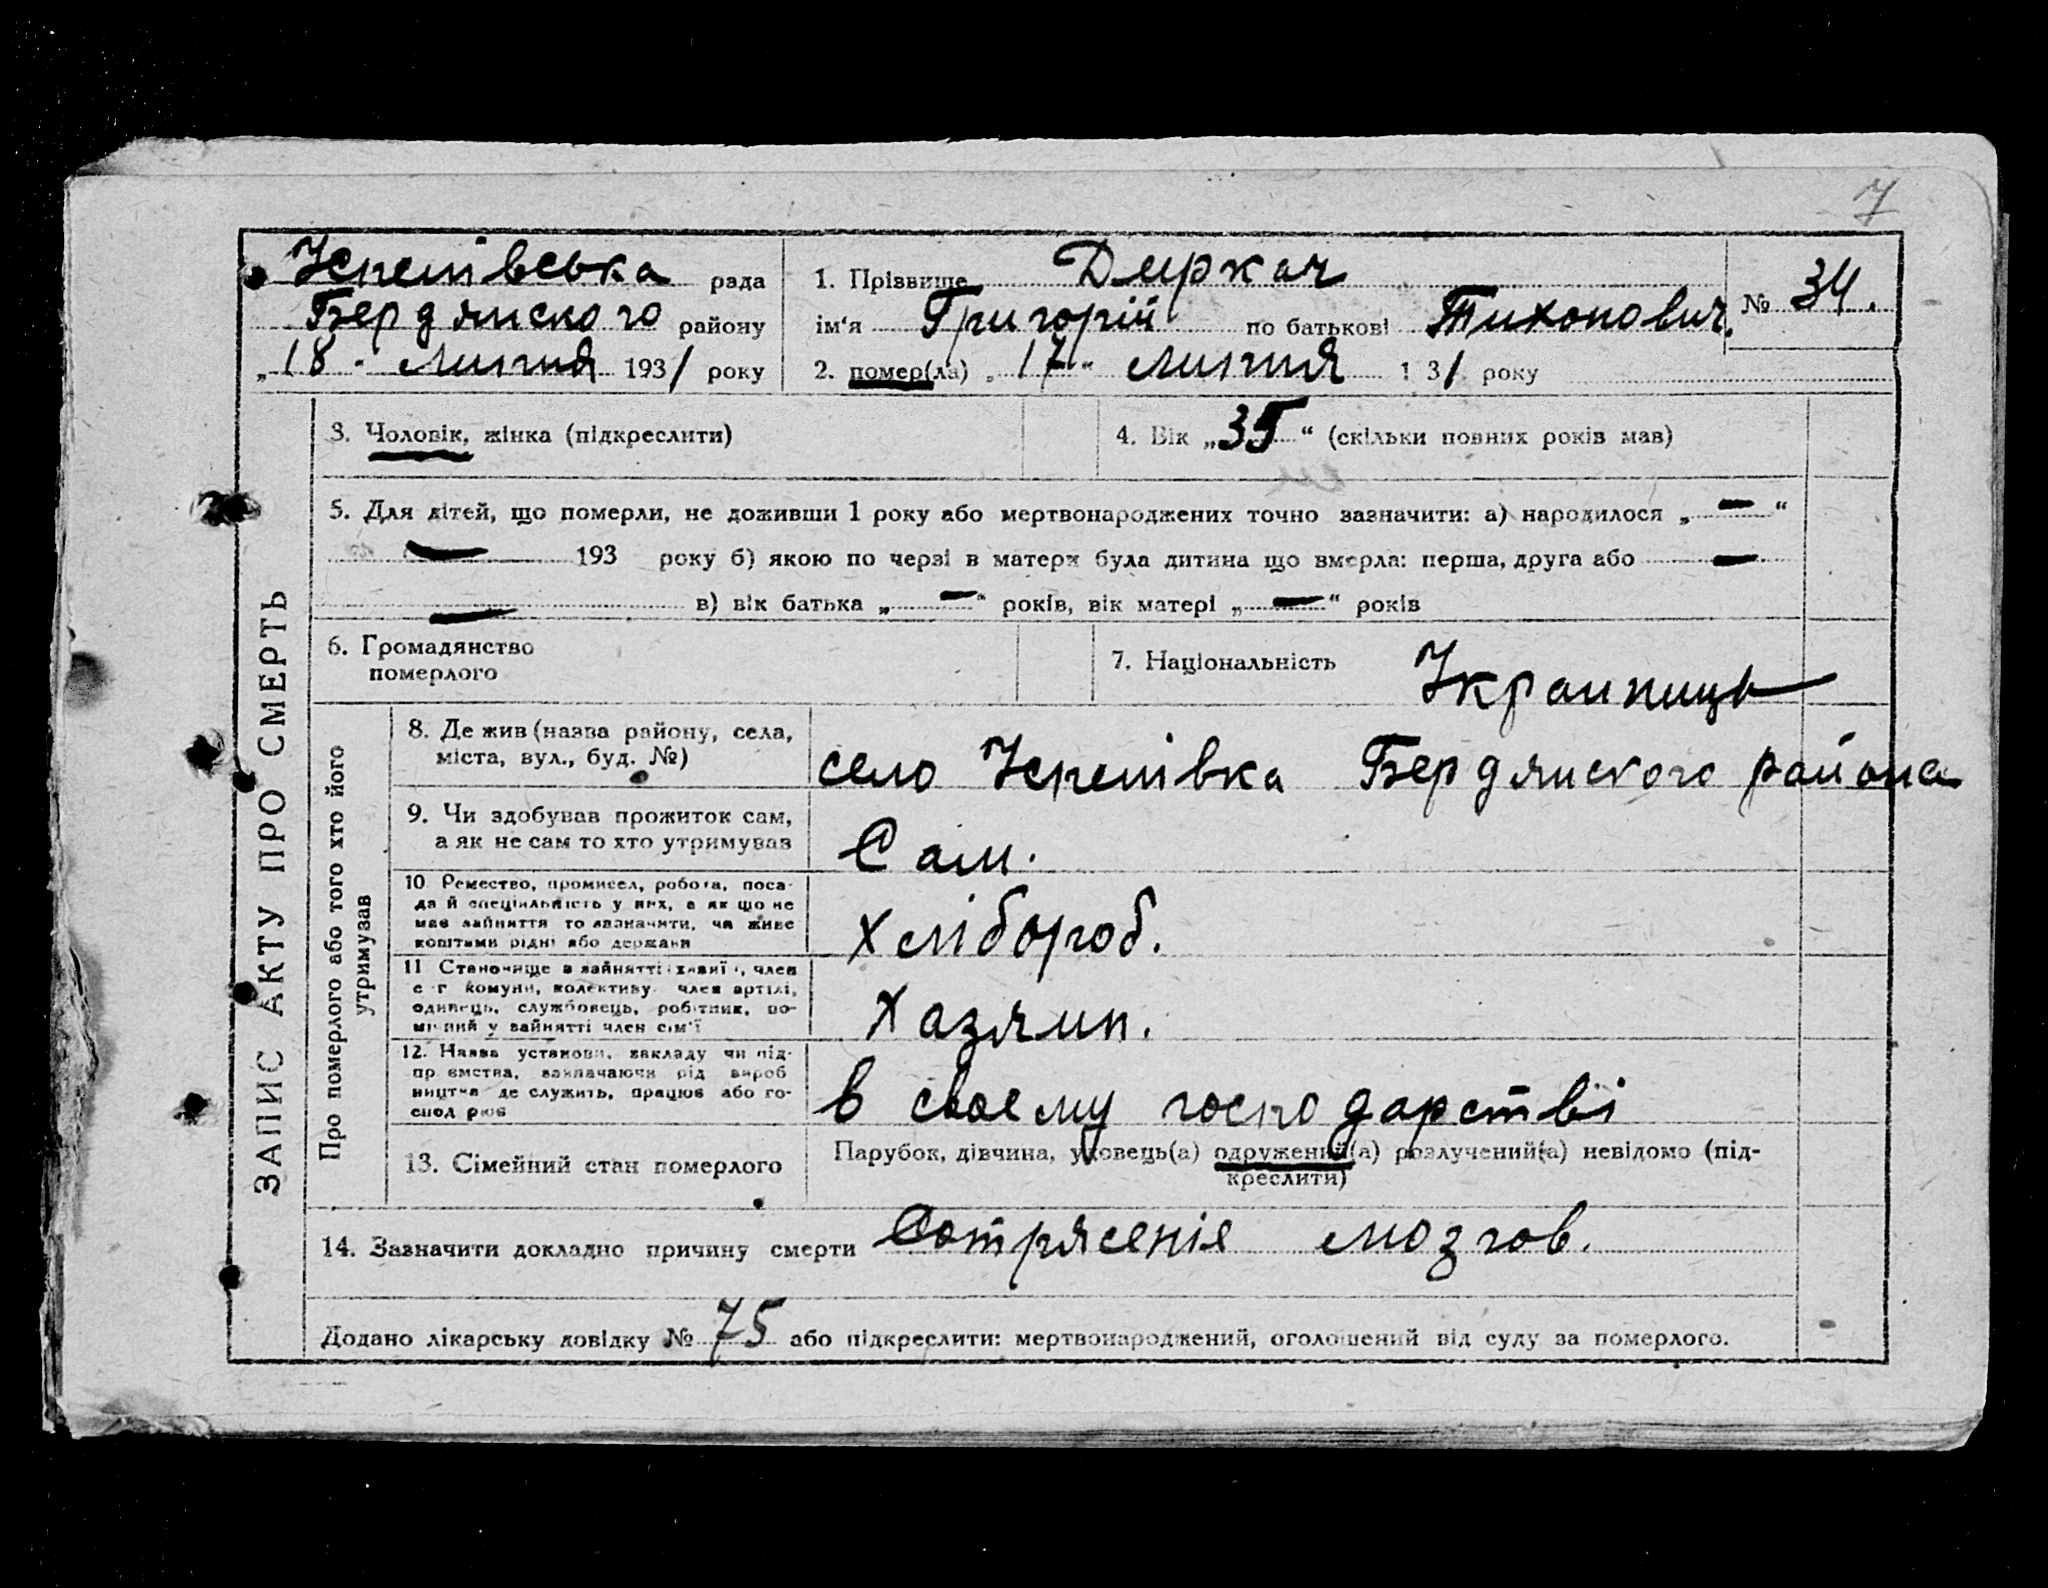 7
Успенівська рада
Бердянского району
„18 · липня 1931 року
1. Прізвище Деркач
ім‘я Григорій по батькові Тихонович.
№ 34.
2. помер(ла) „17“ липня 1 31 року
ЗАПИС АКТУ ПРО СМЕРТЬ
3. Чоловік, жінка (підкреслити)
4. Вік „35“ (скільки повних років мав)
5. Для дітей, що померли, не доживши 1 року або мертвонароджених точно зазначити: а) народилося „—“
— 193 року б) якою по черзі в матери була дитина що вмерла: перша, друга або —
— в) вік батька „—“ років, вік матері „—“ років
6. Громадянство
померлого
7. Національність Украинець
Про померлого або того хто його
утримував
8. Де жив (назва району, села,
міста, вул., буд. №)
село Успенівка Бердянского района
9. Чи здобував прожиток сам,
а як не сам то хто утримував
Сам.
10 Ремество, промисел, робота, поса-
да й спеціяльність у них, а як що не
мав зайняття то зазначити, чи живе
коштами рідні або держави
Хлібороб.
11 Становище в зайнятті , член
с-г комуни, колективу член артілі,
одинець, службовець, робітник, по-
мічний у зайнятті член сім‘ї
Хазяин.
12. Назва установи, закладу чи під-
пр ємства, зазначаючи рід вироб
ництва де служить, працює або го-
спод рює
в своему господарстві
13. Сімейний стан померлого
Парубок, дівчина, удовець(а) одружений(а) розлучений(а) невідомо (під-
креслити)
14. Зазначити докладно причину смерти Сотрясеніе мозгов.
Додано лікарську довідку № 75 або підкреслити: мертвонароджений, оголошений від суду за померлого.